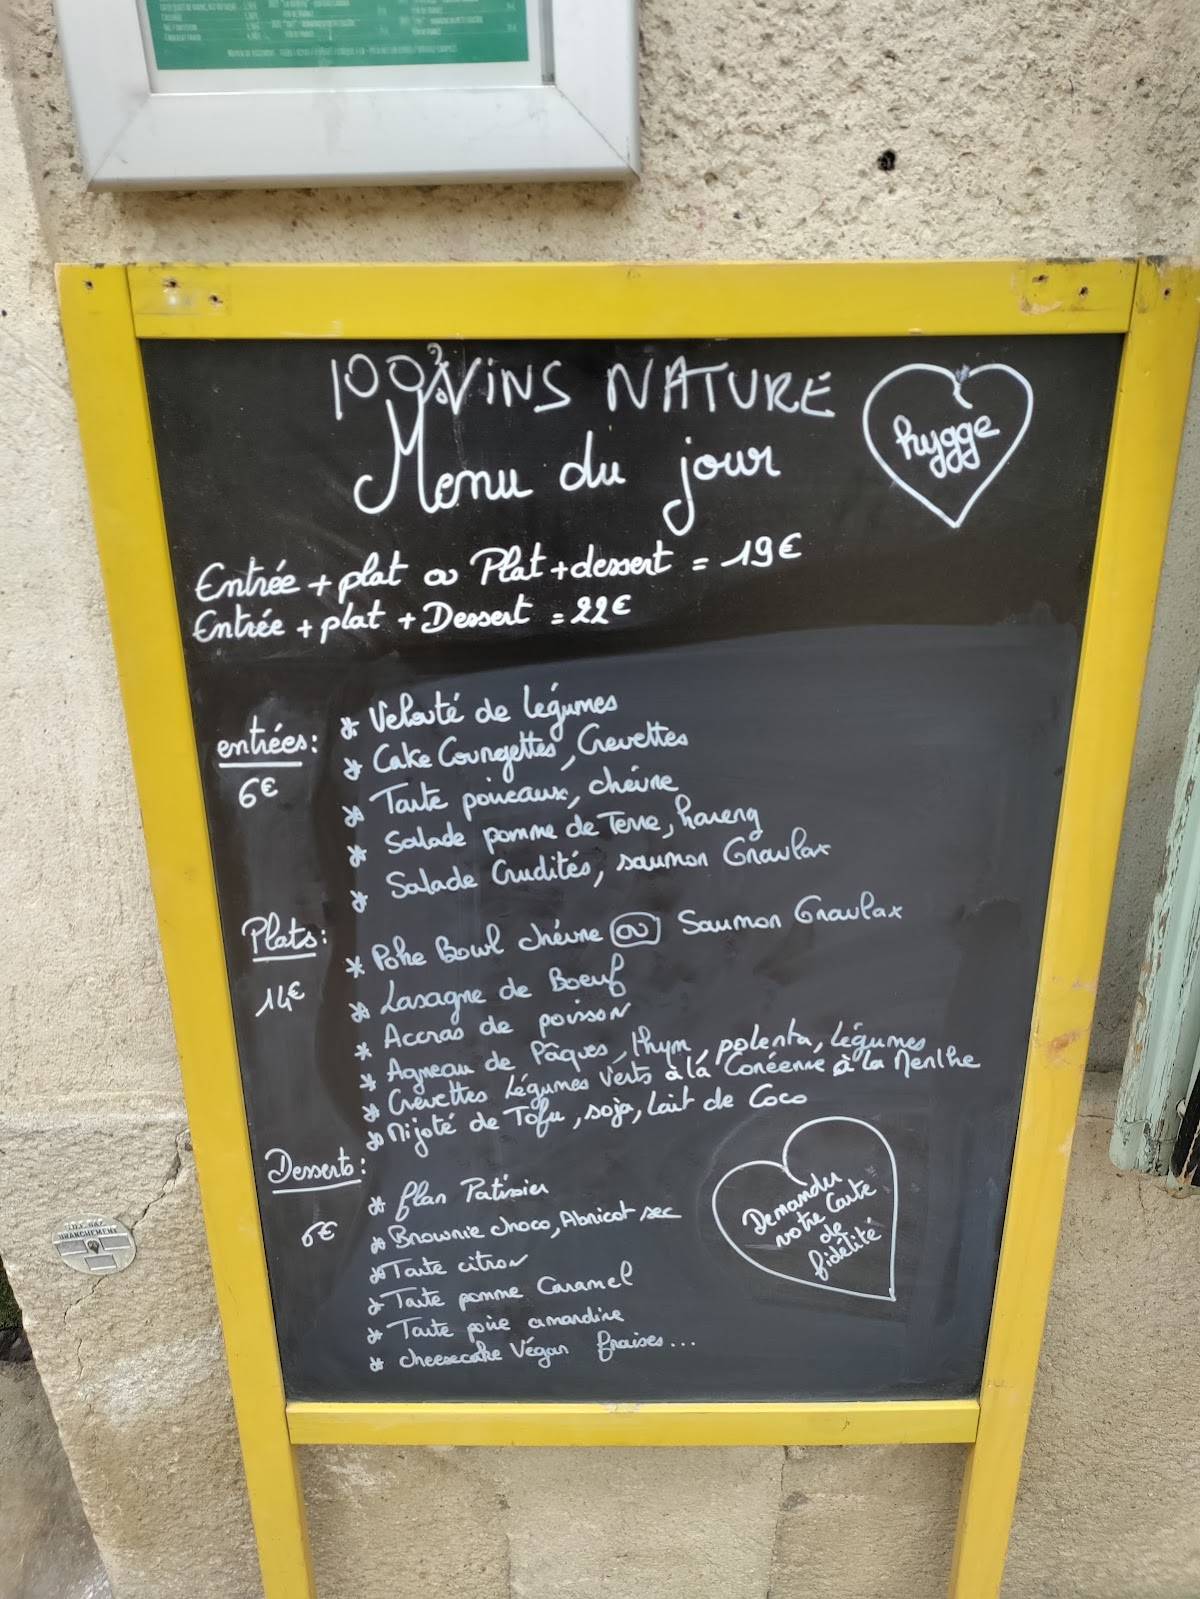 100% VINS NATURE
hygge
Menu du jour
Entrée + plat ou Plat + dessert = 19€
Entrée + plat + Dessert = 22€
entrées:
6€
* Velouté de Légumes
* Cake Courgettes, Crevettes
* Tarte poireaux, chèvre
* Salade pomme de Terre, hareng
* Salade Crudités, saumon Gravlax
Plats:
14€
* Poke Bowl chèvre ou Saumon Gravlax
* Lasagne de Boeuf
* Accras de poisson
* Agneau de Pâques, thym, polenta, légumes
* Crevettes Légumes Verts à la Coréenne à la Menthe
* Mijoté de Tofu, soja, Lait de Coco
Desserts:
6€
* flan Patissier
* Brownie choco, Abricot sec
* Tarte citron
* Tarte pomme Caramel
* Tarte poire amandine
* cheesecake Végan fraises...
Demandez
votre Carte
de
fidélité
BRANCHEMENT